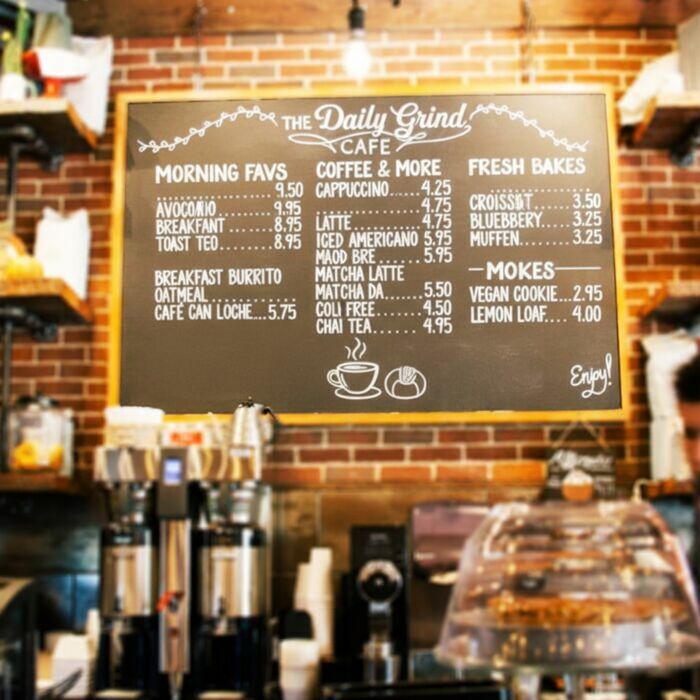 THE Daily Grind
CAFE
MORNING FAVS
....................9.50
AVOCOÑIO.........9.95
BREAKFANT........8.95
TOAST TEO........8.95
BREAKFAST BURRITO
OATMEAL............
CAFÉ CAN LOCHE...5.75
COFFEE & MORE
CAPPUCCINO......4.25
....................4.75
LATTE.............4.75
ICED AMERICANO 5.95
MAOD BRE........5.95
MATCHA LATTE
MATCHA DA.......5.50
COLI FREE........4.50
CHAI TEA.......4.95
FRESH BAKES
....................
CROISSŴT......3.50
BLUEBBERY......3.25
MUFFEN.........3.25
MOKES
VEGAN COOKIE...2.95
LEMON LOAF.... 4.00
Enjoy!